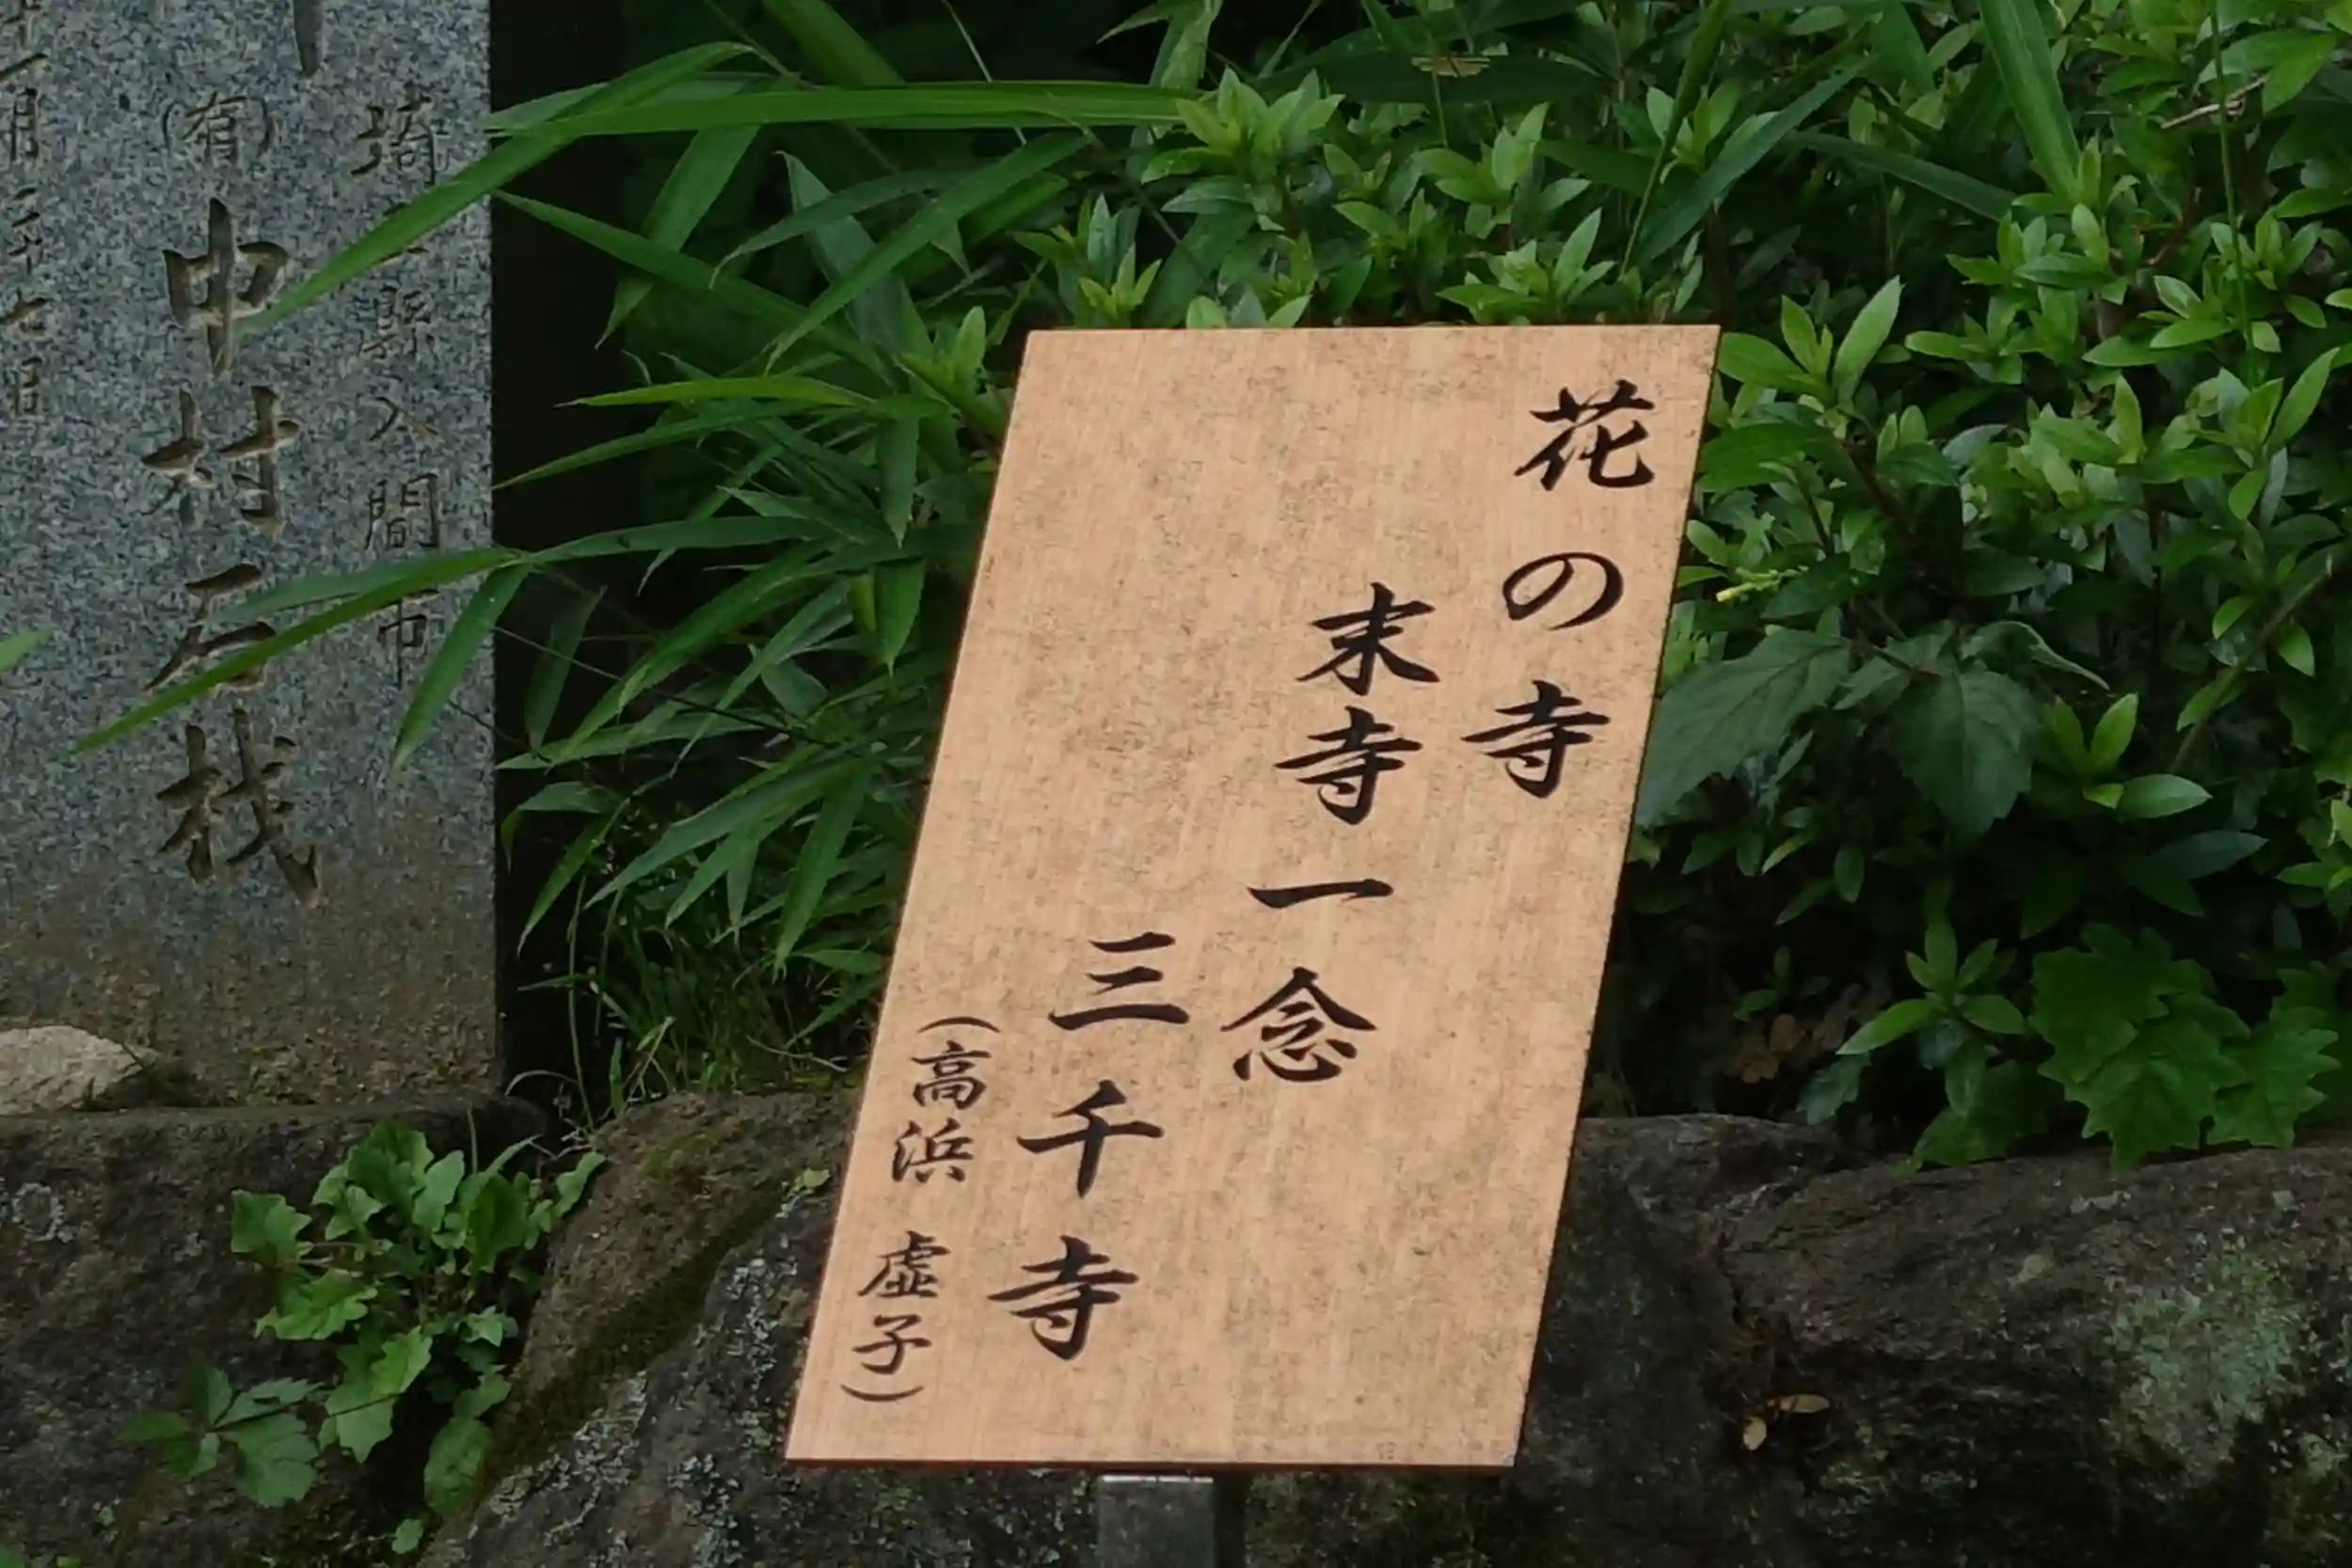 花の寺
末寺一念
三千寺
(高浜 虚子)
埼
縣入間市
(有)中村石材